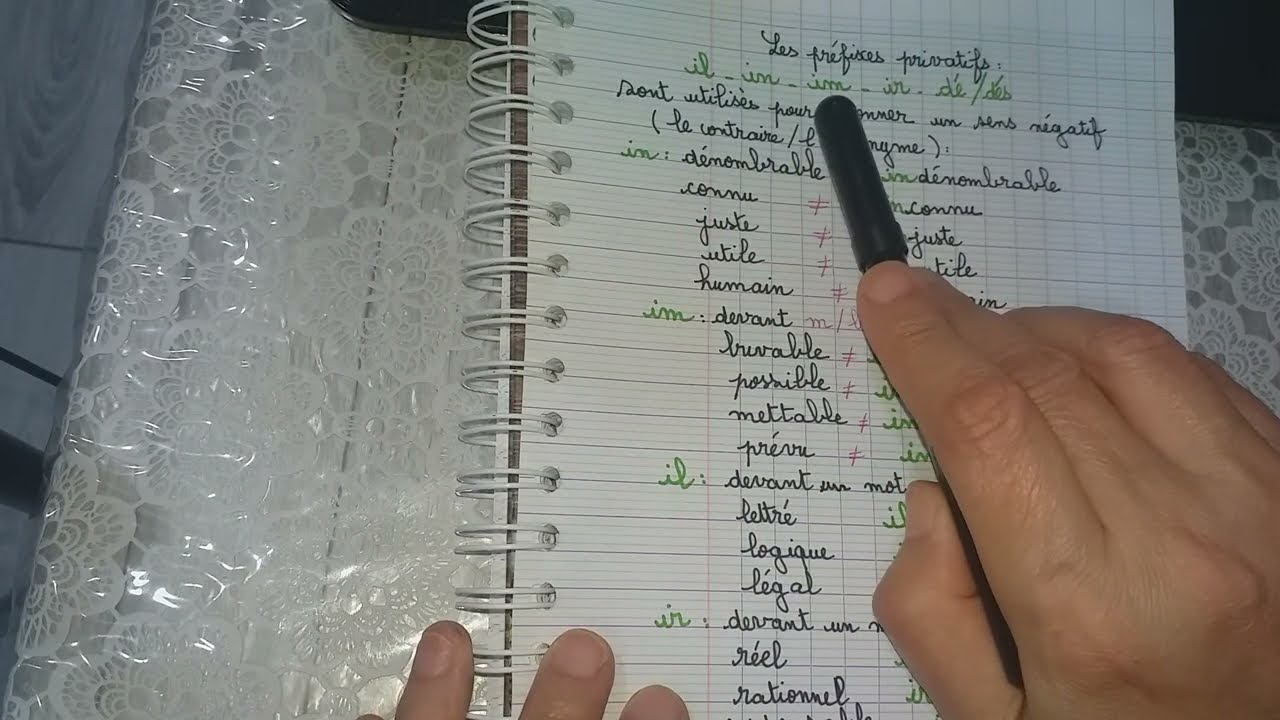 Les préfixes privatifs :
il - in - im - ir - dé/dés
sont utilisés pour un sens négatif
( le contraire/ ) :
in : dénombrable indénombrable
connu ≠ connu
juste ≠ juste
utile ≠ tile
humain ≠
im : devant m/
buvable ≠
possible ≠
mettable ≠
prévu ≠
il : devant un mot
lettré il
logique
légal
ir : devant un
réel
rationnel